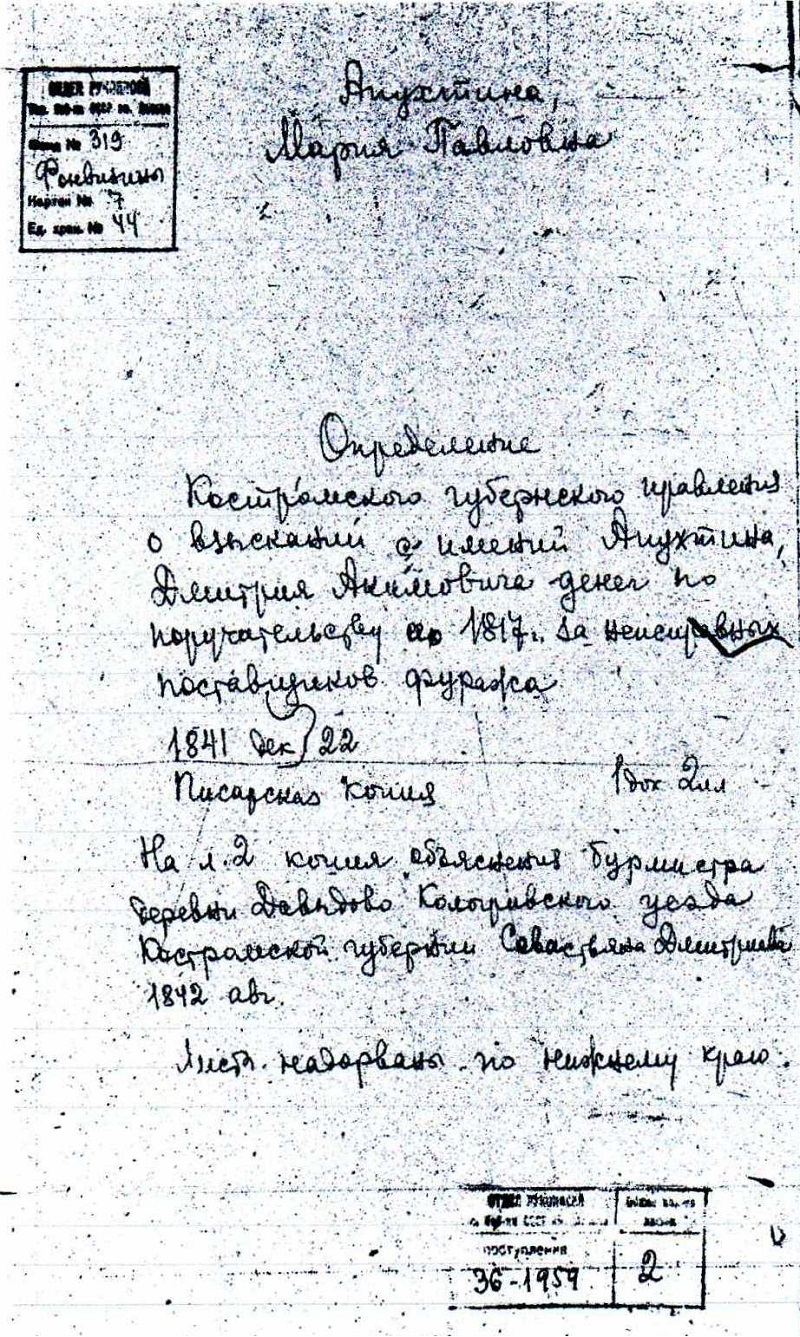 ОТДЕЛ РУКОПИСЕЙ
№ 319
Фонвизины
Картон № 7
Ед. хран. № 44
Апухтина,
Мария Павловна
Определение
Костромского губернского правления
о взыскании с имений Апухтина,
Дмитрия Акимовича денег по
поручательству до 1817 г. за неисправных
поставщиков фуража
1841 дек 22
Писарская копия
1 док 2 лл
На л. 2 копия объяснения бурмистра
деревни Давыдово Кологривского уезда
Костромской губернии Севастьяна Дмитриева
1842 авг.
Листы надорваны по нижнему краю.
ОТДЕЛ РУКОПИСЕЙ
поступления
36-1959
2